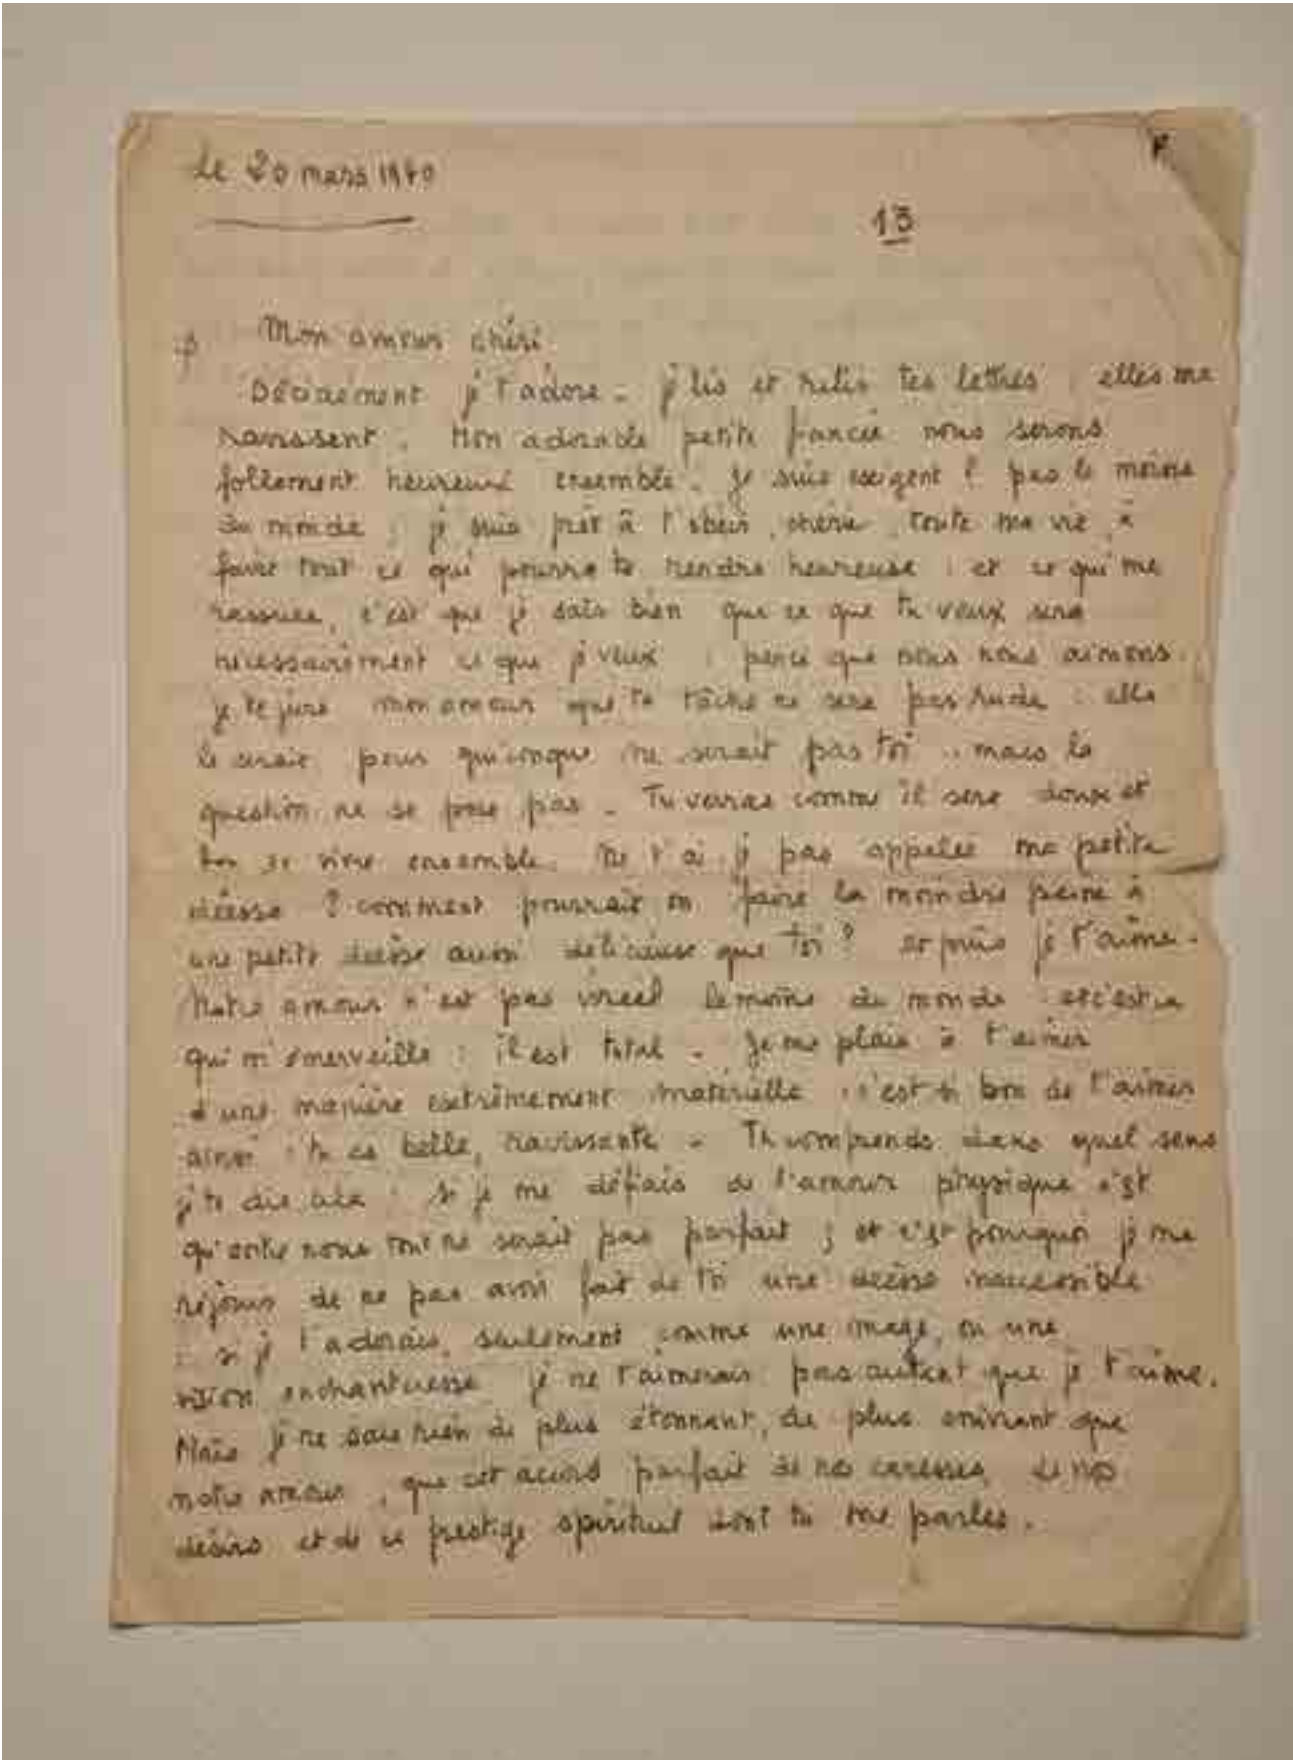 Le 20 mars 1940
13
Mon amour chéri
Décidément je t'adore. je lis et relis tes lettres : elles me
ravissent. Mon adorable petite fiancée nous serons
follement heureux ensemble. Je suis exigent ? pas le moins
du monde : je suis prêt à t'obéir, chérie, toute ma vie, à
faire tout ce qui pourra te rendre heureuse : et ce qui me
rassure, c'est que je sais bien que ce que tu veux sera
nécessairement ce que je veux : parce que nous nous aimons.
je te jure mon amour que ta tâche ne sera pas rude : elle
le serait pour quiconque ne serait pas toi .. mais la
question ne se pose pas. Tu verras comme il sera doux et
bon de vivre ensemble. Ne t'ai-je pas appelée ma petite
déesse ? comment pourrait on faire la moindre peine à
une petite déesse aussi délicieuse que toi ? et puis je t'aime.
Notre amour n'est pas irréel le moins du monde et c'est ce
qui m'émerveille : il est total. Je me plais à t'aimer
d'une manière extrêmement matérielle : c'est si bon de t'aimer
ainsi : tu es belle, ravissante. Tu comprends dans quel sens
je te dis cela : si je me défiais de l'amour physique c'est
qu'entre nous tout ne serait pas parfait ; et c'est pourquoi je me
réjouis de ne pas avoir fait de toi une déesse inaccessible
: si je t'adorais, seulement comme une image, ou une
vision enchanteresse je ne t'aimerais pas autant que je t'aime.
Mais je ne sais rien de plus étonnant, de plus enivrant que
notre amour, que cet accord parfait de nos caresses, de nos
désirs et de ce prestige spirituel dont tu me parles.